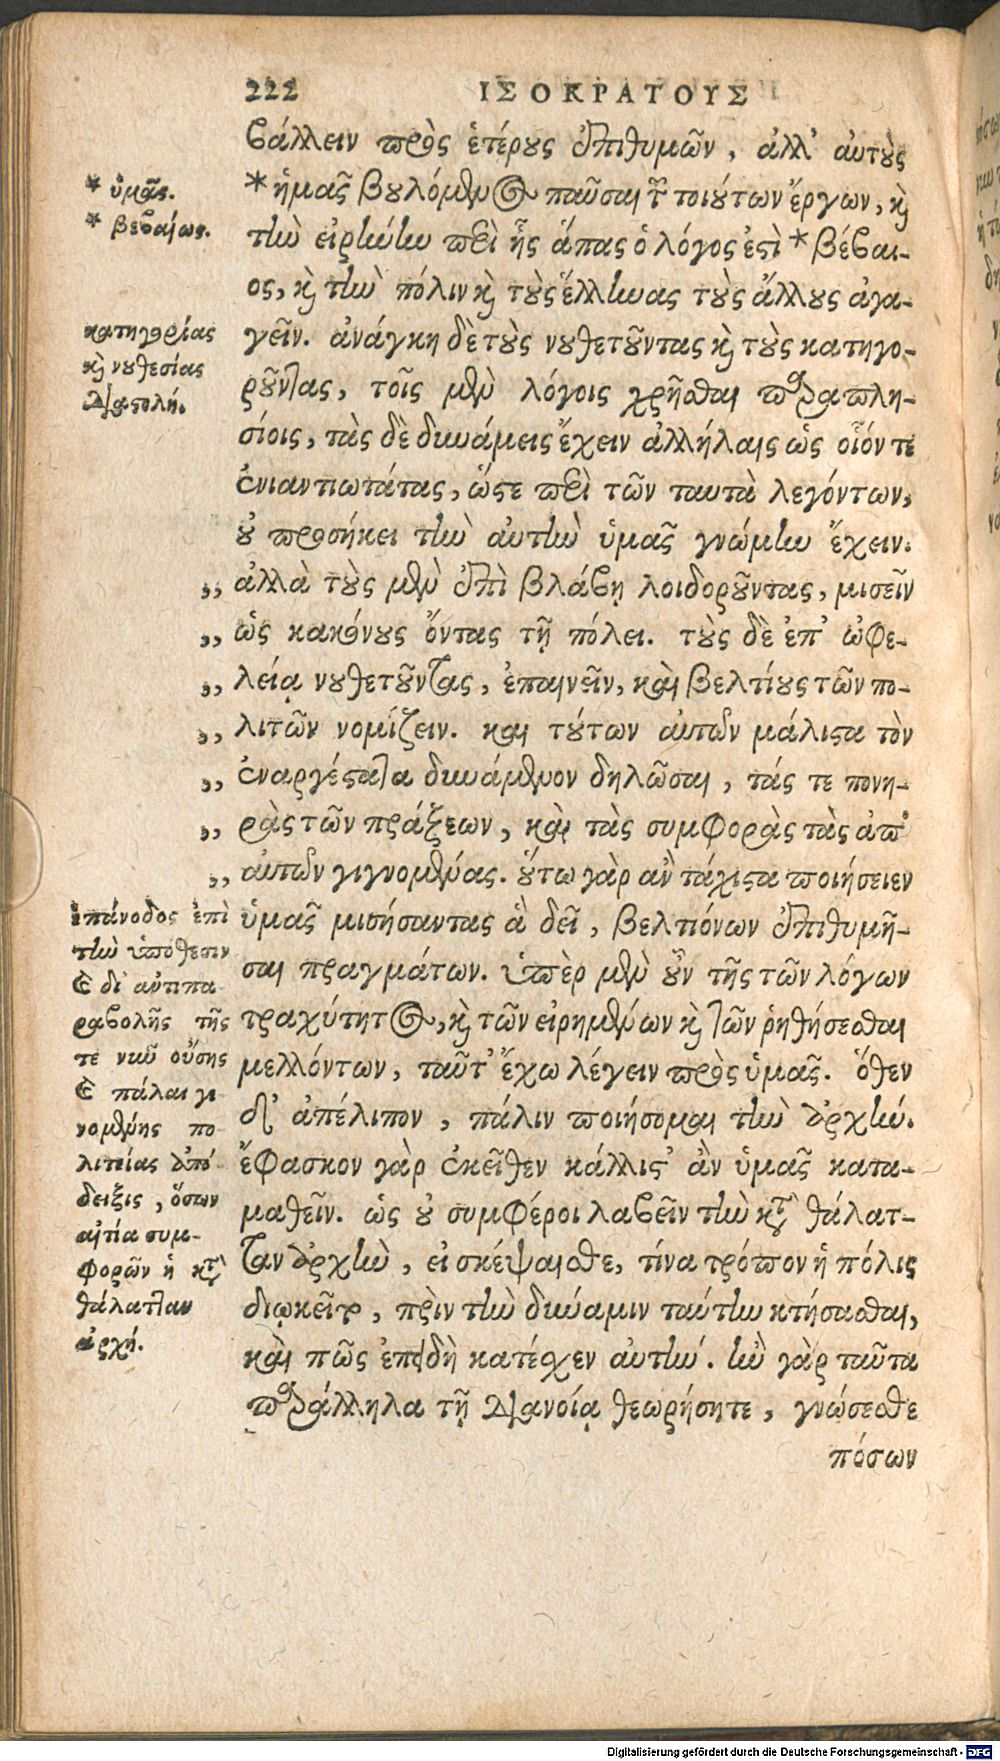 222 ΙΣΟΚΡΑΤΟΥΣ
βάλλειν πρὸς ἑτέρους ἐπιθυμῶν, ἀλλ' αὐτοὺς
* ἡμᾶς βουλόμενος παῦσαι τῶν τοιούτων ἔργων, καὶ
τὴν εἰρήνην περὶ ἧς ἅπας ὁ λόγος ἐστὶ * βέβαι-
ος, καὶ τὴν πόλιν καὶ τοὺς ἕλληνας τοὺς ἄλλους ἀγα-
γεῖν. ἀνάγκη δὲ τοὺς νουθετοῦντας καὶ τοὺς κατηγο-
ροῦντας, τοῖς μὲν λόγοις χρῆσθαι παραπλη-
σίοις, τὰς δὲ δυνάμεις ἔχειν ἀλλήλαις ὡς οἷόν τε
ἐναντιωτάτας, ὥστε περὶ τῶν ταυτὰ λεγόντων,
οὐ προσήκει τὴν αὐτὴν ὑμᾶς γνώμην ἔχειν.
„ ἀλλὰ τοὺς μὲν ἐπὶ βλάβῃ λοιδοροῦντας, μισεῖν
„ ὡς κακόνους ὄντας τῇ πόλει. τοὺς δὲ ἐπ' ὠφε-
„ λείᾳ νουθετοῦντας, ἐπαινεῖν, καὶ βελτίους τῶν πο-
„ λιτῶν νομίζειν. καὶ τούτων αὐτῶν μάλιστα τὸν
„ ἐναργέστατα δυνάμενον δηλῶσαι, τάς τε πονη-
„ ρὰς τῶν πράξεων, καὶ τὰς συμφορὰς τὰς ἀπ'
„ αὐτῶν γιγνομένας. οὕτω γὰρ ἂν τάχιστα ποιήσειεν
ὑμᾶς μισήσαντας ἃ δεῖ, βελτιόνων ἐπιθυμῆ-
σαι πραγμάτων. ὑπὲρ μὲν οὖν τῆς τῶν λόγων
τραχύτητος, καὶ τῶν εἰρημένων καὶ τῶν ῥηθήσεσθαι
μελλόντων, ταῦτ' ἔχω λέγειν πρὸς ὑμᾶς. ὅθεν
δ' ἀπέλιπον, πάλιν ποιήσομαι τὴν ἀρχήν.
ἔφασκον γὰρ ἐκεῖθεν κάλλιστ' ἂν ὑμᾶς κατα-
μαθεῖν. ὡς οὐ συμφέροι λαβεῖν τὴν κατὰ θάλατ-
ταν ἀρχὴν, εἰ σκέψαισθε, τίνα τρόπον ἡ πόλις
διῳκεῖτο, πρὶν τὴν δύναμιν ταύτην κτήσασθαι,
καὶ πῶς ἐπειδὴ κατέσχεν αὐτήν. ἢν γὰρ ταῦτα
παράλληλα τῇ διανοίᾳ θεωρήσητε, γνώσεσθε
πόσων
* ὑμᾶς.
* βεβαίως.
κατηγορίας
καὶ νουθεσίας
διαστολή.
ἐπάνοδος ἐπὶ
τὴν ὑπόθεσιν
καὶ δι' ἀντιπα
ραβολῆς τῆς
τε νῦν οὔσης
καὶ πάλαι γι
νομένης πο
λιτείας ἀπό
δειξις, ὅσων
αἰτία συμ-
φορῶν ἡ κατὰ
θάλατταν
ἀρχή.
Digitalisierung gefördert durch die Deutsche Forschungsgemeinschaft - DFG